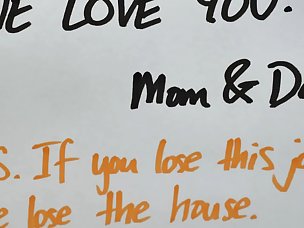 LOVE YOU.
Mom &
S. If you lose this
lose the house.